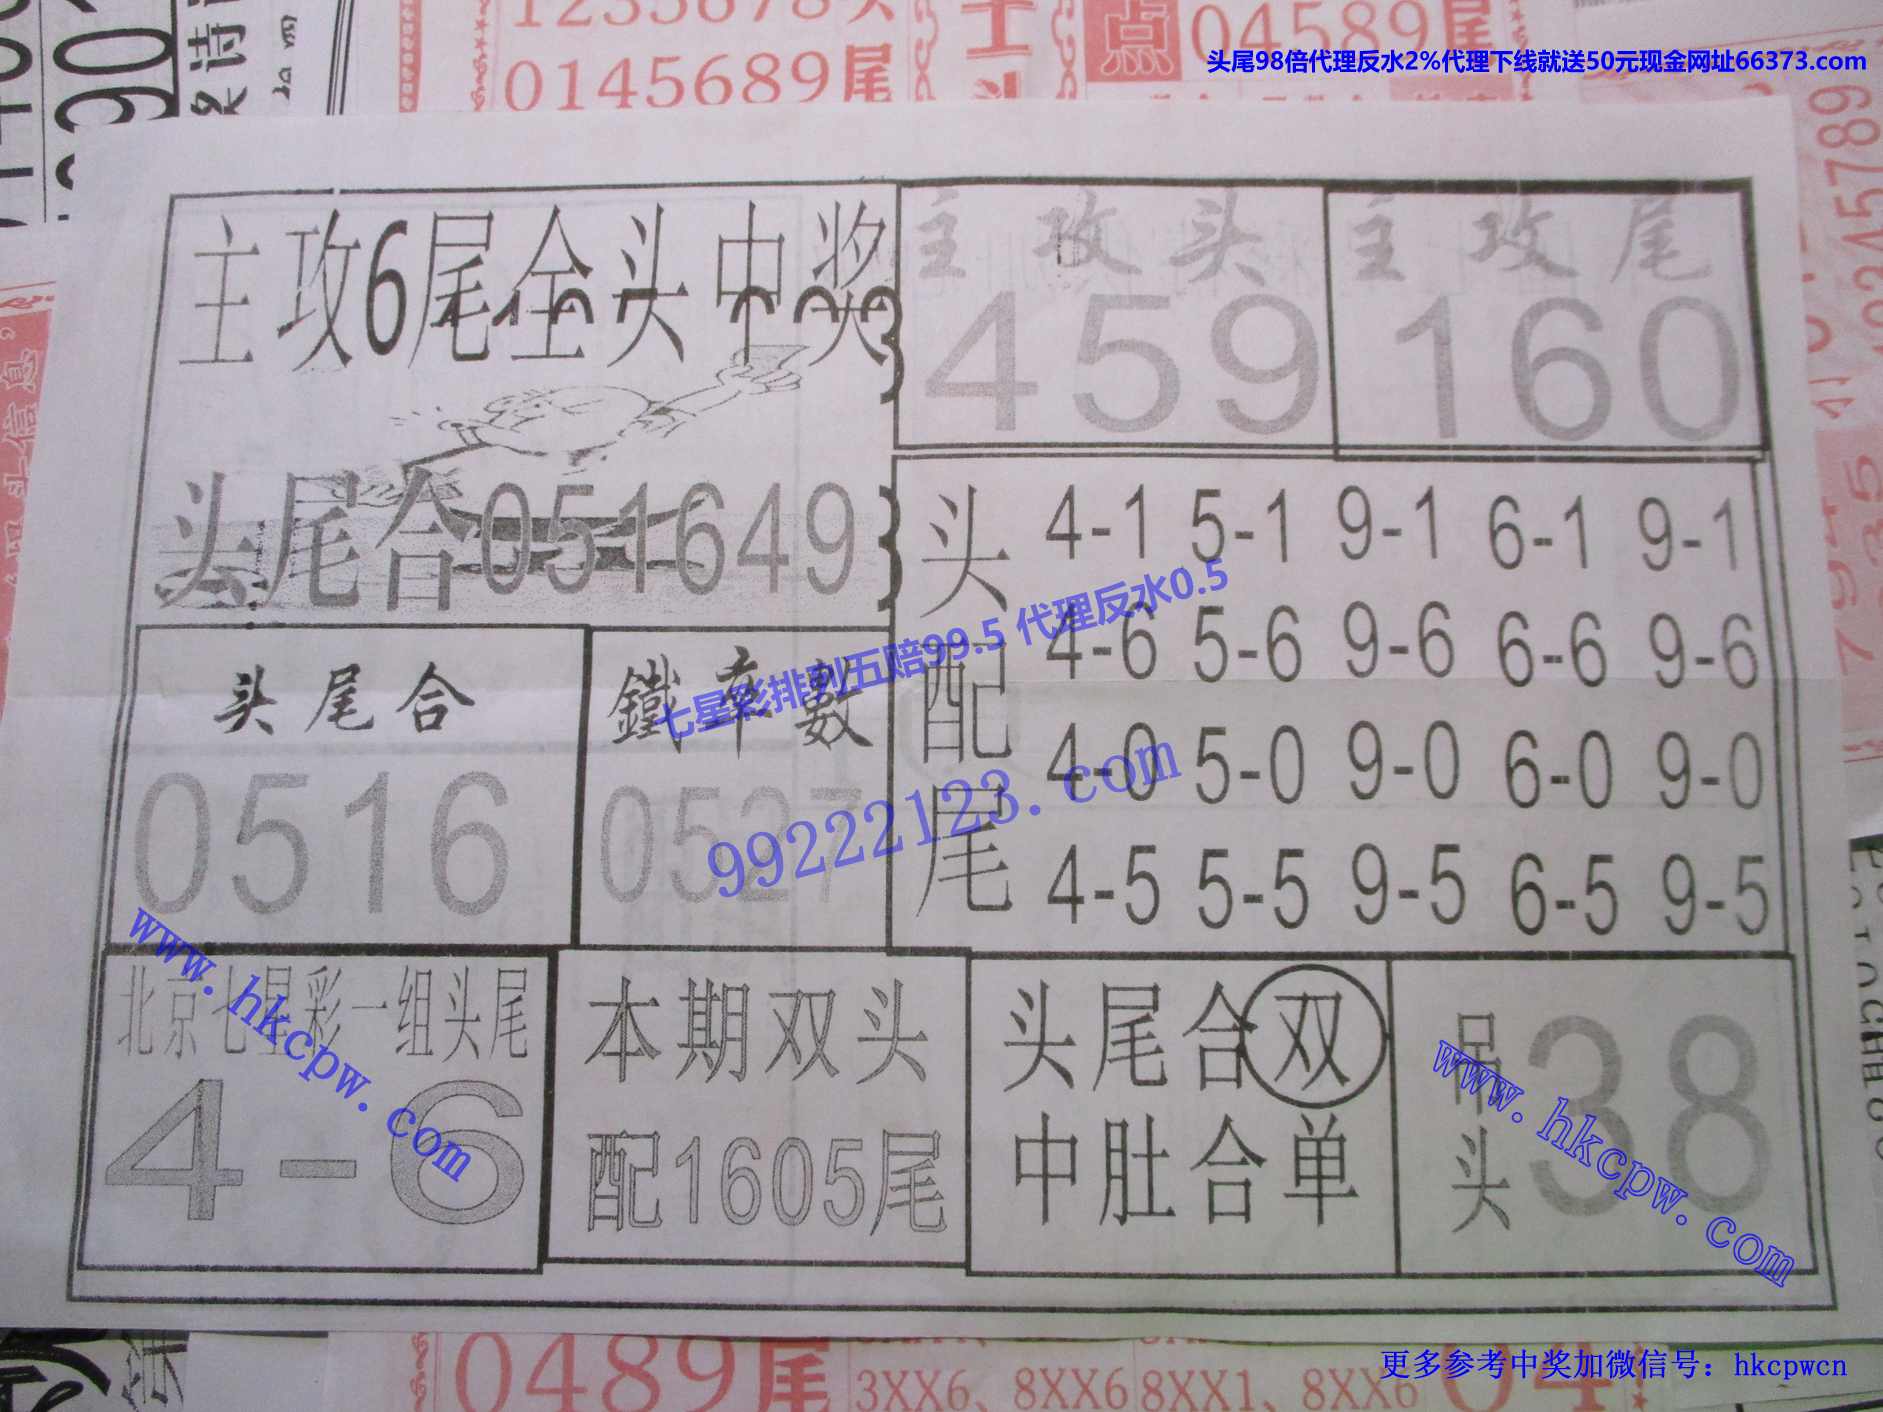 1235678头
0145689尾
点
04589尾
头尾98倍代理反水2%代理下线就送50元现金网址66373.com
主攻6尾全头中奖
头尾合051649
主攻头
459
主攻尾
160
头配尾
4-1 5-1 9-1 6-1 9-1
4-6 5-6 9-6 6-6 9-6
4-0 5-0 9-0 6-0 9-0
4-5 5-5 9-5 6-5 9-5
七星彩排列五赔99.5 代理反水0.5
99222123.com
头尾合
0516
鐵率數
0527
www.hkcpw.com
北京七星彩一组头尾
4-6
本期双头
配1605尾
头尾合双
中肚合单
吊头
38
www.hkcpw.com
0489尾
3XX6、8XX6
8XX1、8XX6
更多参考中奖加微信号：hkcpwcn